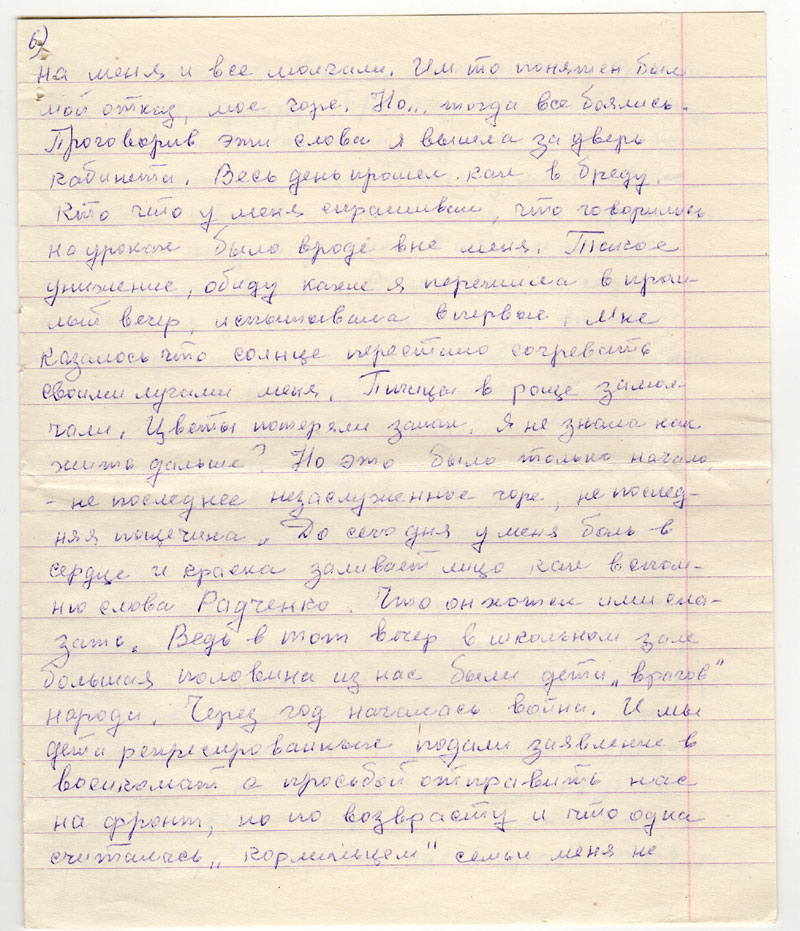 6)
на меня и все молчали. Им то понятен был
мой отказ, мое горе. Но... тогда все боялись.
Проговорив эти слова я вышла за дверь
кабинета. Весь день прошел как в бреду.
Кто что у меня спрашивал, что говорилось
на уроках было вроде вне меня. Такое
унижение, обиду какие я пережила в прош-
лый вечер, испытывала впервые. Мне
казалось что солнце перестало согревать
своими лучами меня. Птицы в роще замол-
чали. Цветы потеряли запах. Я не знала как
жить дальше? Но это было только начало,
- не последнее незаслуженное горе, не послед-
няя пощечина. До сегодня у меня боль в
сердце и краска заливает лицо как вспом-
ню слова Радченко. Что он хотел ими ска-
зать. Ведь в тот вечер в школьном зале
большая половина из нас были дети „врагов"
народа. Через год началась война. И мы
дети репресированных подали заявление в
военкомат с просьбой отправить нас
на фронт, но по возврасту и что одна
считалась „кормильцем" семьи меня не